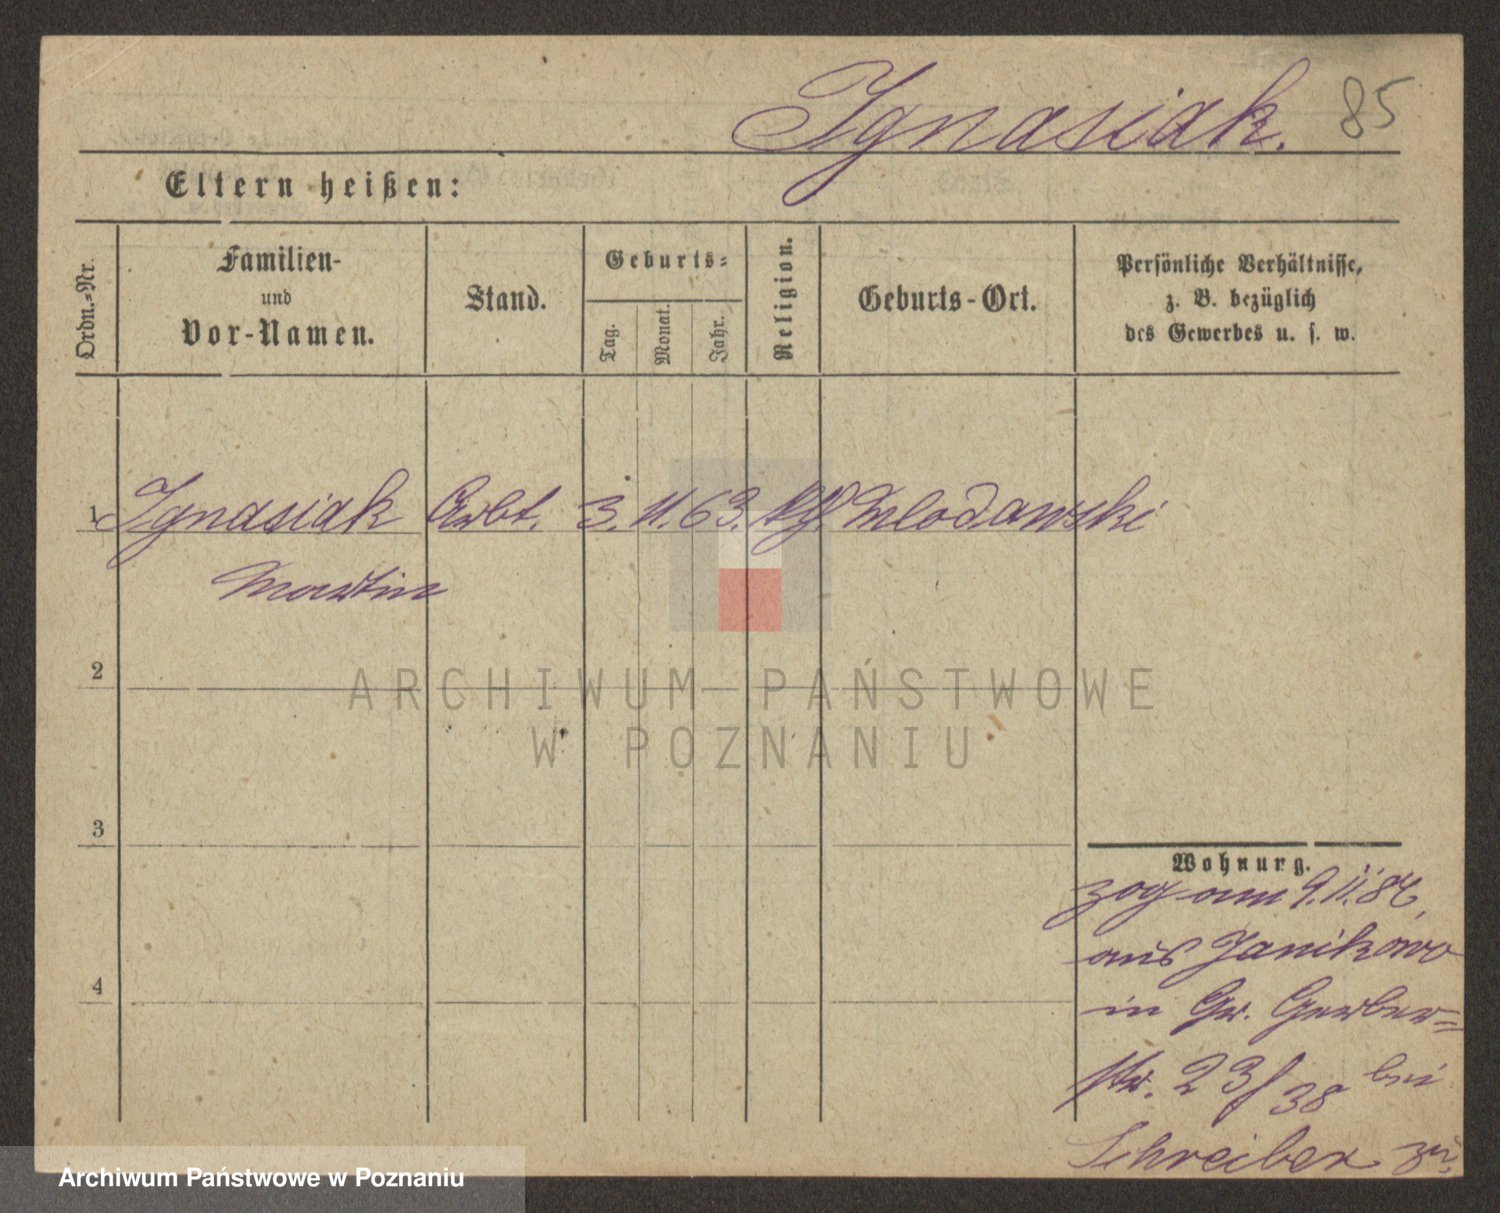 Ignasiak. 85
Eltern heißen:
Ordn.-Nr.
Familien-
und
Vor-Namen.
Stand.
Geburts-
Tag.
Monat.
Jahr.
Religion.
Geburts-Ort.
Persönliche Verhältnisse,
z. B. bezüglich
des Gewerbes u. s. w.
1 Ignasiak Arbt. 3. 11. 63. Wlodawski
Martin
2
3
4
Wohnung.
zog am 9.11.86,
aus Janikowo
in Gr. Gerber-
str. 23/38 bei
Schreiber zu.
ARCHIWUM PAŃSTWOWE
W POZNANIU
Archiwum Państwowe w Poznaniu